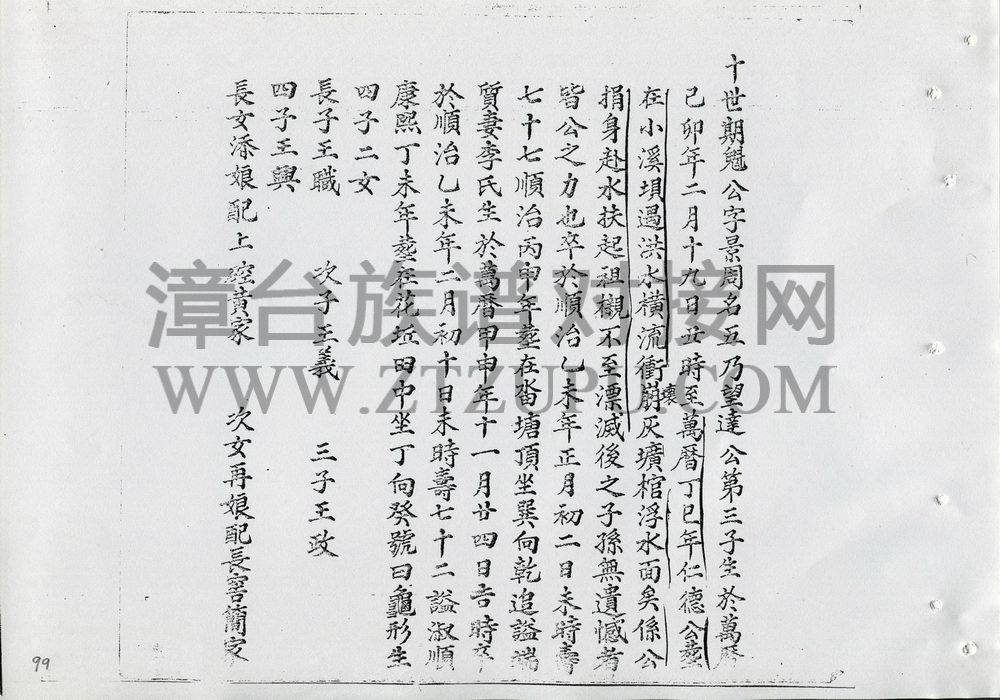 十世期魁公字景周名五乃望達公第三子生於萬曆
己卯年二月十九日丑時至萬曆丁巳年仁德公塟
在小溪埧遇洪水橫流衝崩壞灰壙棺浮水面矣係公
捐身赴水扶起祖櫬不至漂滅後之子孫無遺憾者
皆公之力也卒於順治乙未年正月初二日未時壽
七十七順治丙申年塟在畓塘頂坐巽向乾追謚端
質妻李氏生於萬曆甲申年十一月廿四日吉時卒
於順治乙未年二月初十日未時壽七十二謚淑順
康熙丁未年塟在花坵田中坐丁向癸號曰龜形生
四子二女
長子王職 次子王義 三子王政
四子王興
長女添娘配上 黃家 次女再娘配長窖簡家
漳台族谱对接网
WWW.ZTZUPU.COM
99